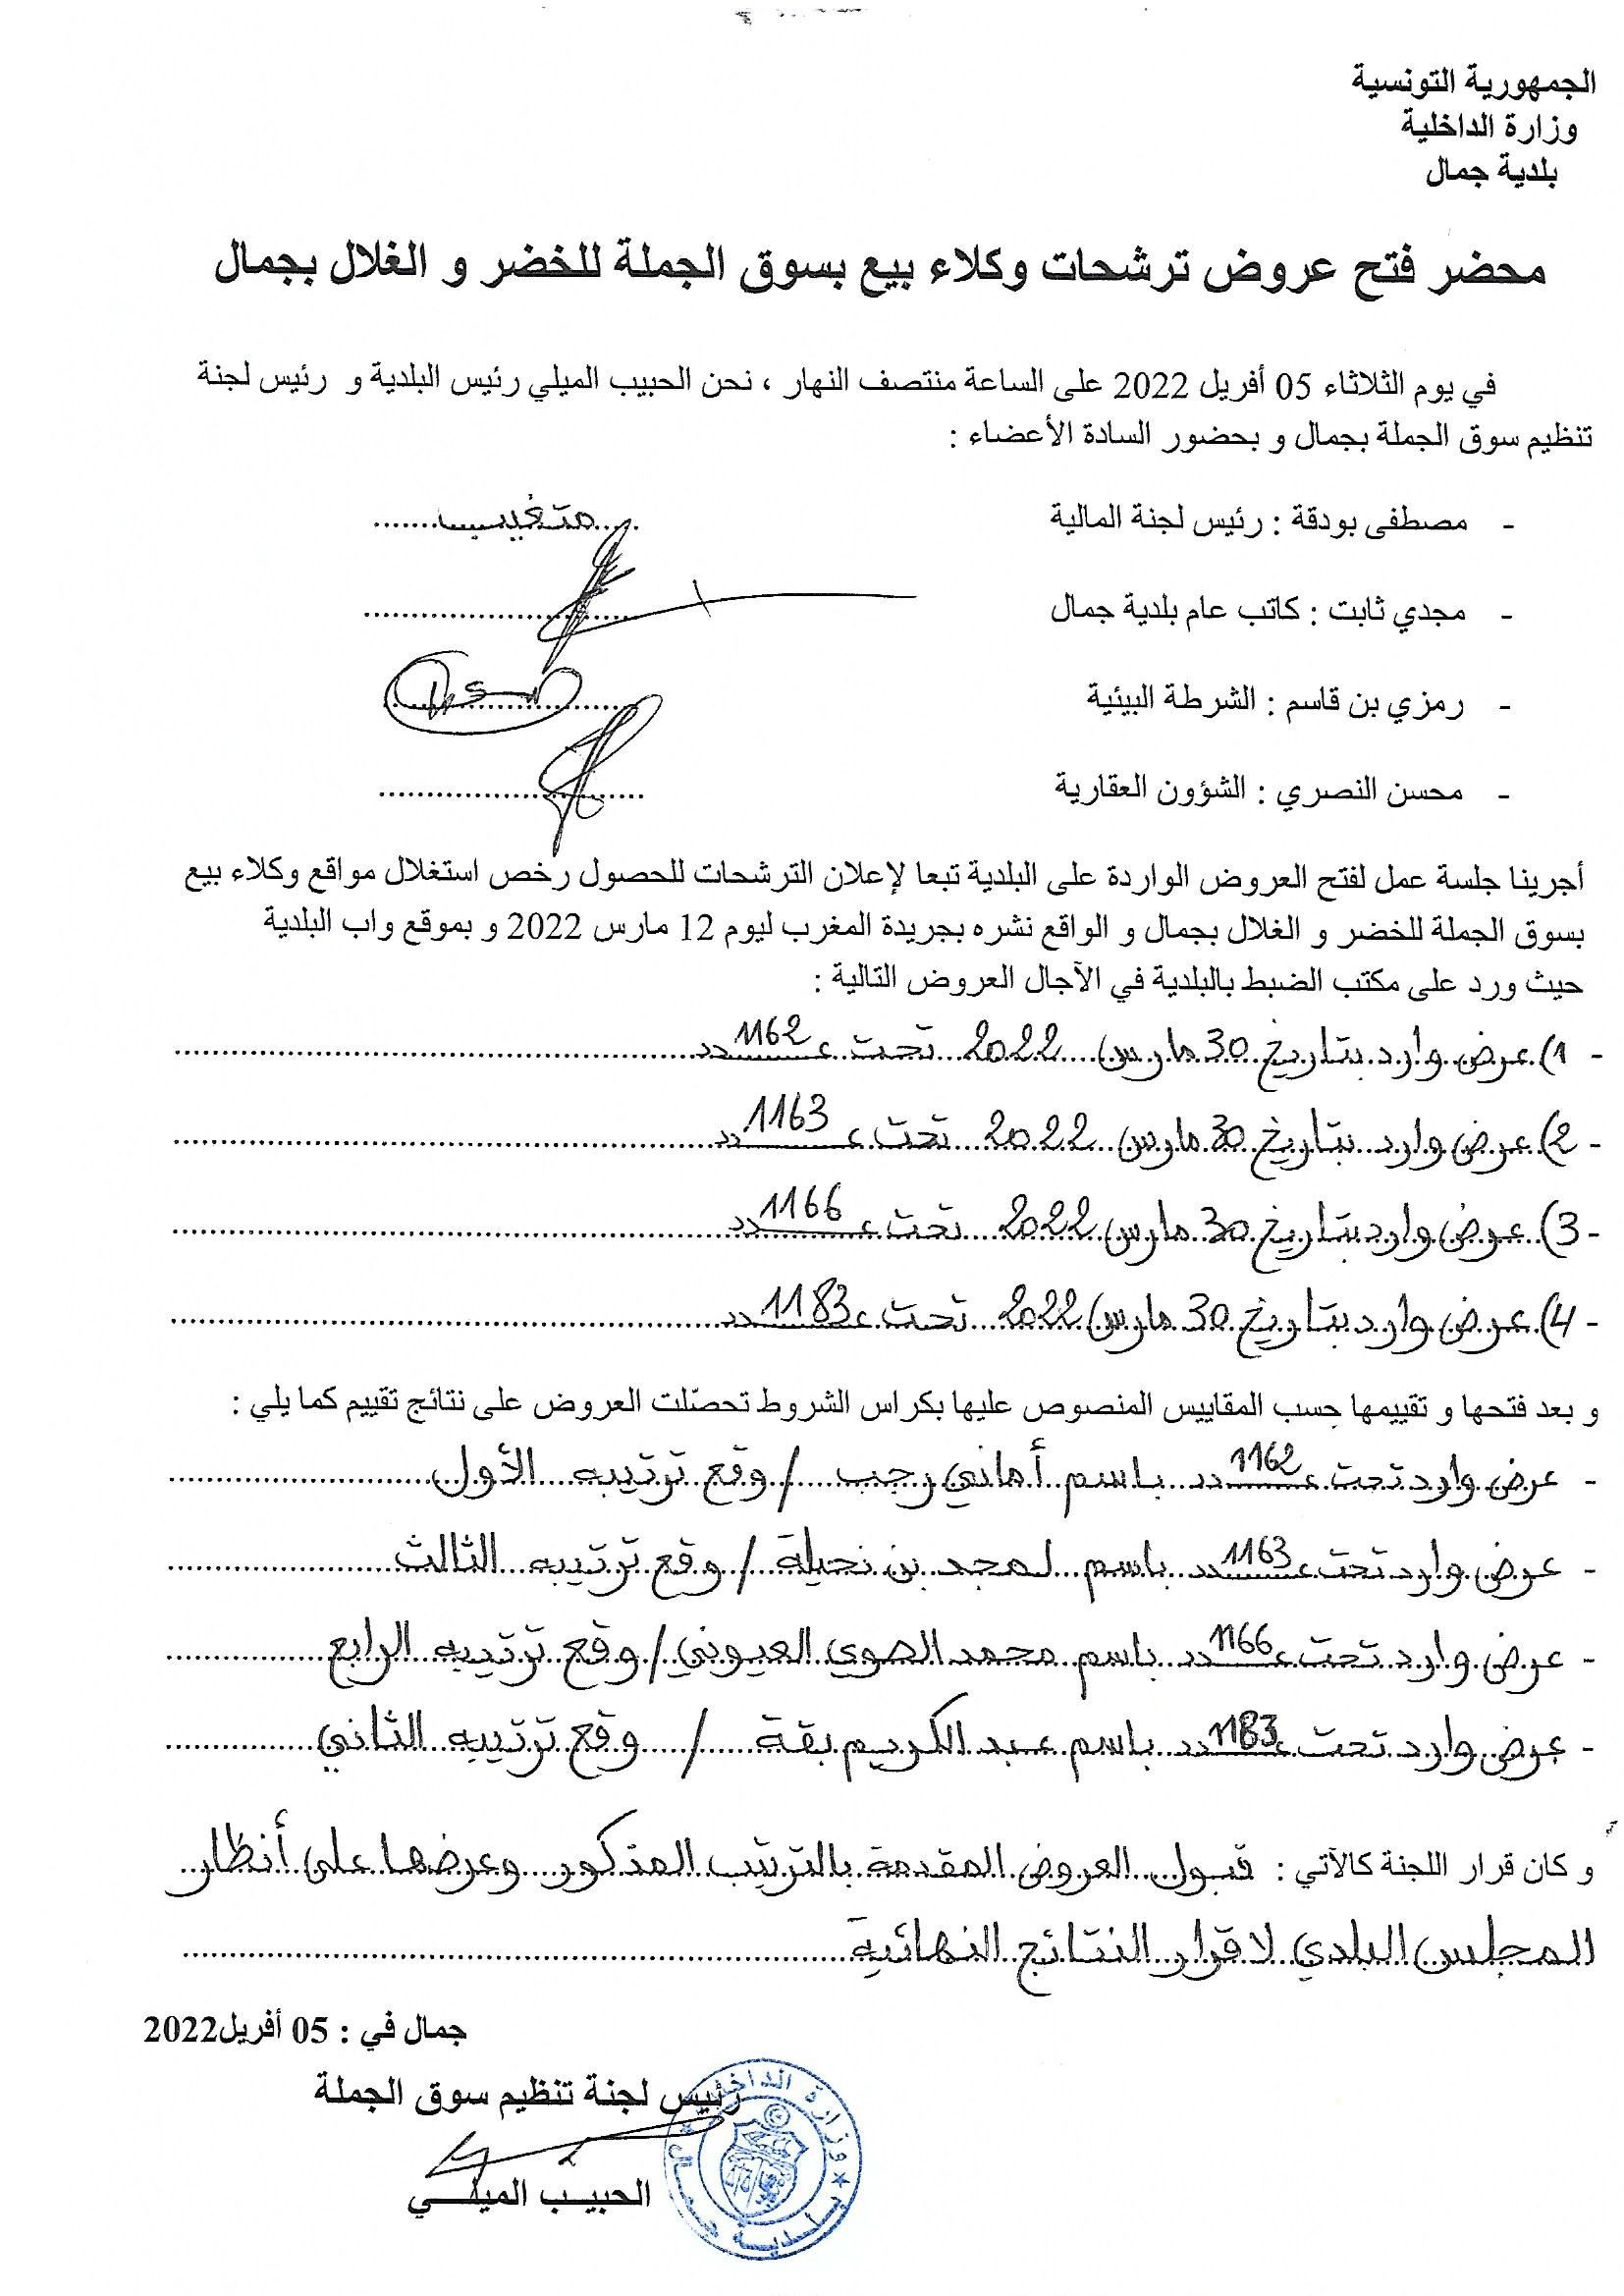 الجمهورية التونسية
وزارة الداخلية
بلدية جمال
محضر فتح عروض ترشحات وكلاء بيع بسوق الجملة للخضر و الغلال بجمال
في يوم الثلاثاء 05 أفريل 2022 على الساعة منتصف النهار ، نحن الحبيب الميلي رئيس البلدية و رئيس لجنة
تنظيم سوق الجملة بجمال و بحضور السادة الأعضاء :
- مصطفى بودقة : رئيس لجنة المالية متغيب
- مجدي ثابت : كاتب عام بلدية جمال
- رمزي بن قاسم : الشرطة البيئية
- محسن النصري : الشؤون العقارية
أجرينا جلسة عمل لفتح العروض الواردة على البلدية تبعا لإعلان الترشحات للحصول رخص استغلال مواقع وكلاء بيع
بسوق الجملة للخضر و الغلال بجمال و الواقع نشره بجريدة المغرب ليوم 12 مارس 2022 و بموقع واب البلدية
حيث ورد على مكتب الضبط بالبلدية في الآجال العروض التالية :
- 1) عرض وارد بتاريخ 30 مارس 2022 تحت عـ1162ـدد
- 2) عرض وارد بتاريخ 30 مارس 2022 تحت عـ1163ـدد
- 3) عرض وارد بتاريخ 30 مارس 2022 تحت عـ1166ـدد
- 4) عرض وارد بتاريخ 30 مارس 2022 تحت عـ1183ـدد
و بعد فتحها و تقييمها حسب المقاييس المنصوص عليها بكراس الشروط تحصّلت العروض على نتائج تقييم كما يلي :
- عرض وارد تحت عـ1162ـدد باسم أماني رجب / وقع ترتيبه الأول
- عرض وارد تحت عـ1163ـدد باسم لمجد بن نجيلة / وقع ترتيبه الثالث
- عرض وارد تحت عـ1166ـدد باسم محمد الصوي العيوني / وقع ترتيبه الرابع
- عرض وارد تحت عـ1183ـدد باسم عبد الكريم بقة / وقع ترتيبه الثاني
و كان قرار اللجنة كالآتي : قبول العروض المقدمة بالترتيب المذكور وعرضها على أنظار
المجلس البلدي لاقرار النتائج النهائية
جمال في : 05 أفريل2022
رئيس لجنة تنظيم سوق الجملة
الحبيـب الميلـــي
وزارة الداخلية
بلدية جمال